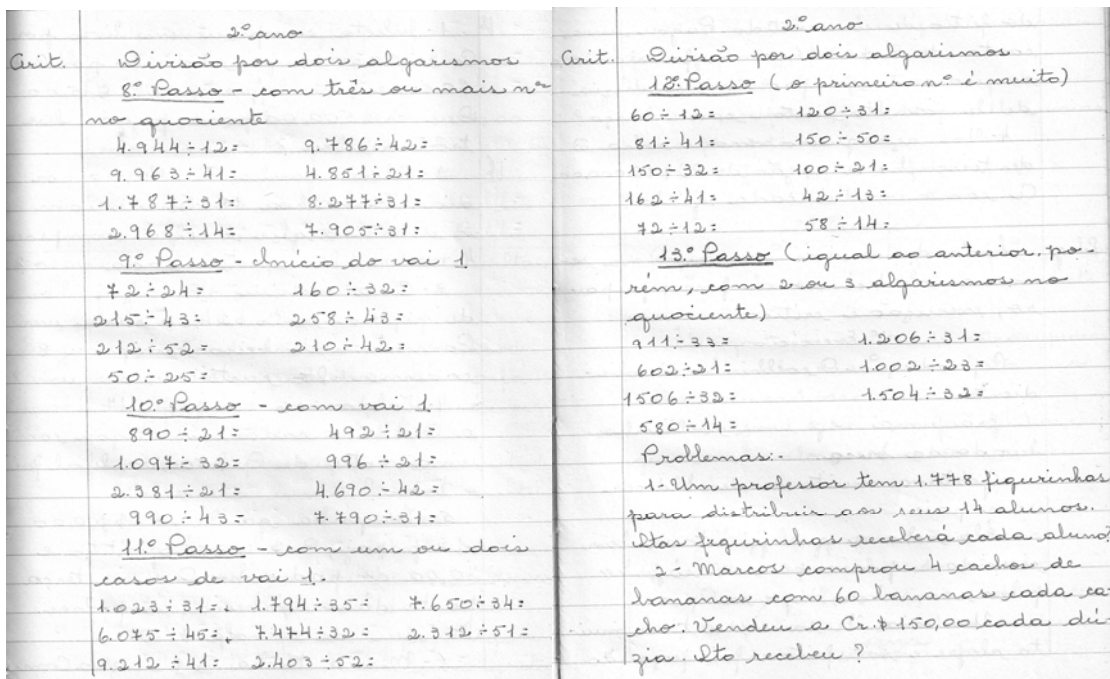 2º ano
Arit. Divisão por dois algarismos
8º Passo - com três ou mais nºs
no quociente
4.944÷12= 9.786÷42=
9.963÷41= 4.851÷21=
1.787÷31= 8.277÷31=
2.968÷14= 7.905÷31=
9º Passo - Início do vai 1
72÷24= 160÷32=
215÷43= 258÷43=
212÷52= 210÷42=
50÷25=
10º Passo - com vai 1.
890÷21= 492÷21=
1.097÷32= 996÷21=
2.381÷21= 4.690÷42=
990÷43= 7.790÷31=
11º Passo - com um ou dois
casos de vai 1.
1.023÷31= 1.794÷35= 7.650÷34=
6.075÷45= 7.474÷32= 2.312÷51=
9.212÷41= 2.403÷52=
2º ano
Arit. Divisão por dois algarismos
12º Passo (o primeiro nº é muito)
60÷12= 120÷31=
81÷41= 150÷50=
150÷32= 100÷21=
162÷41= 42÷13=
72÷12= 58÷14=
13º Passo (igual ao anterior, po-
rém, com 2 ou 3 algarismos no
quociente)
911÷33= 1.206÷31=
602÷21= 1.002÷23=
1506÷32= 1.504÷32=
580÷14=
Problemas:-
1- Um professor tem 1.778 figurinhas
para distribuir aos seus 14 alunos.
Qtas figurinhas receberá cada aluno?
2- Marcos comprou 4 cachos de
bananas com 60 bananas cada ca-
cho. Vendeu a Cr.$ 150,00 cada dú-
zia. Qto recebeu?